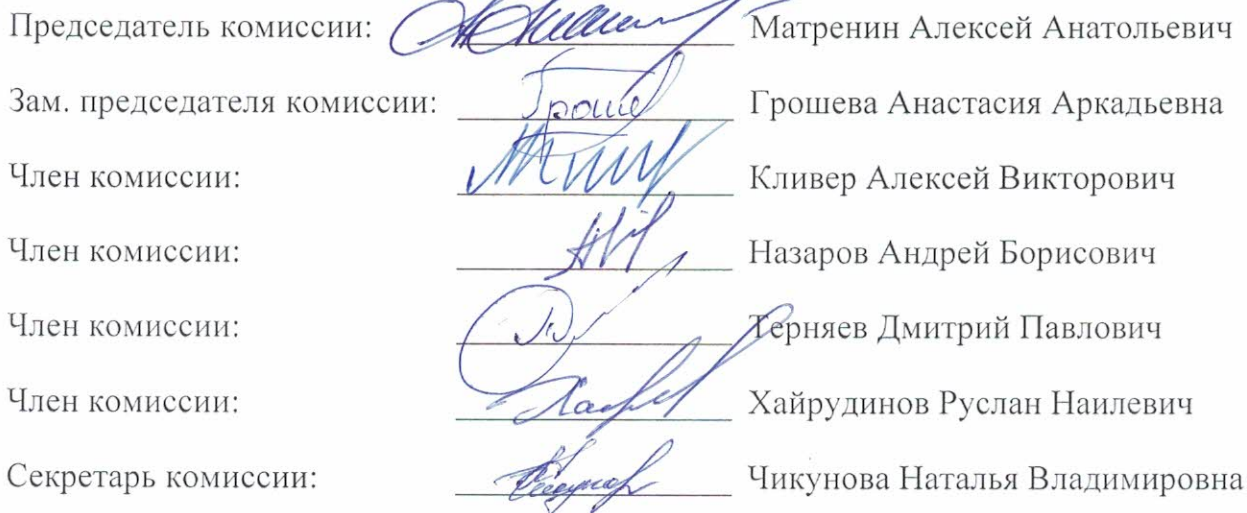 Председатель комиссии: Матренин Алексей Анатольевич
Зам. председателя комиссии: Грошева Анастасия Аркадьевна
Член комиссии: Кливер Алексей Викторович
Член комиссии: Назаров Андрей Борисович
Член комиссии: Терняев Дмитрий Павлович
Член комиссии: Хайрудинов Руслан Наилевич
Секретарь комиссии: Чикунова Наталья Владимировна